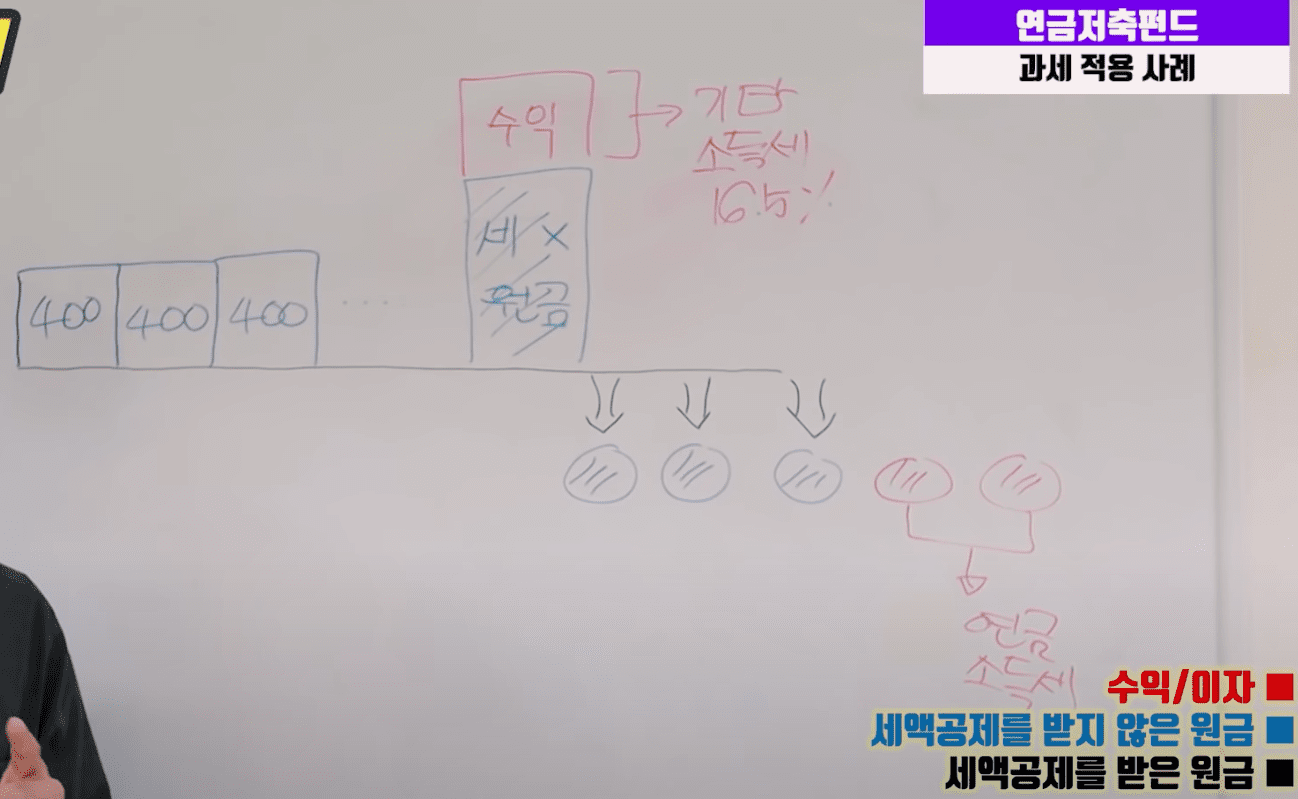 연금저축펀드
과세 적용 사례
수익
기타
소득세
16.5%
세 X
원금
400 400 400 ...
연금
소득세
수익/이자
세액공제를 받지 않은 원금
세액공제를 받은 원금